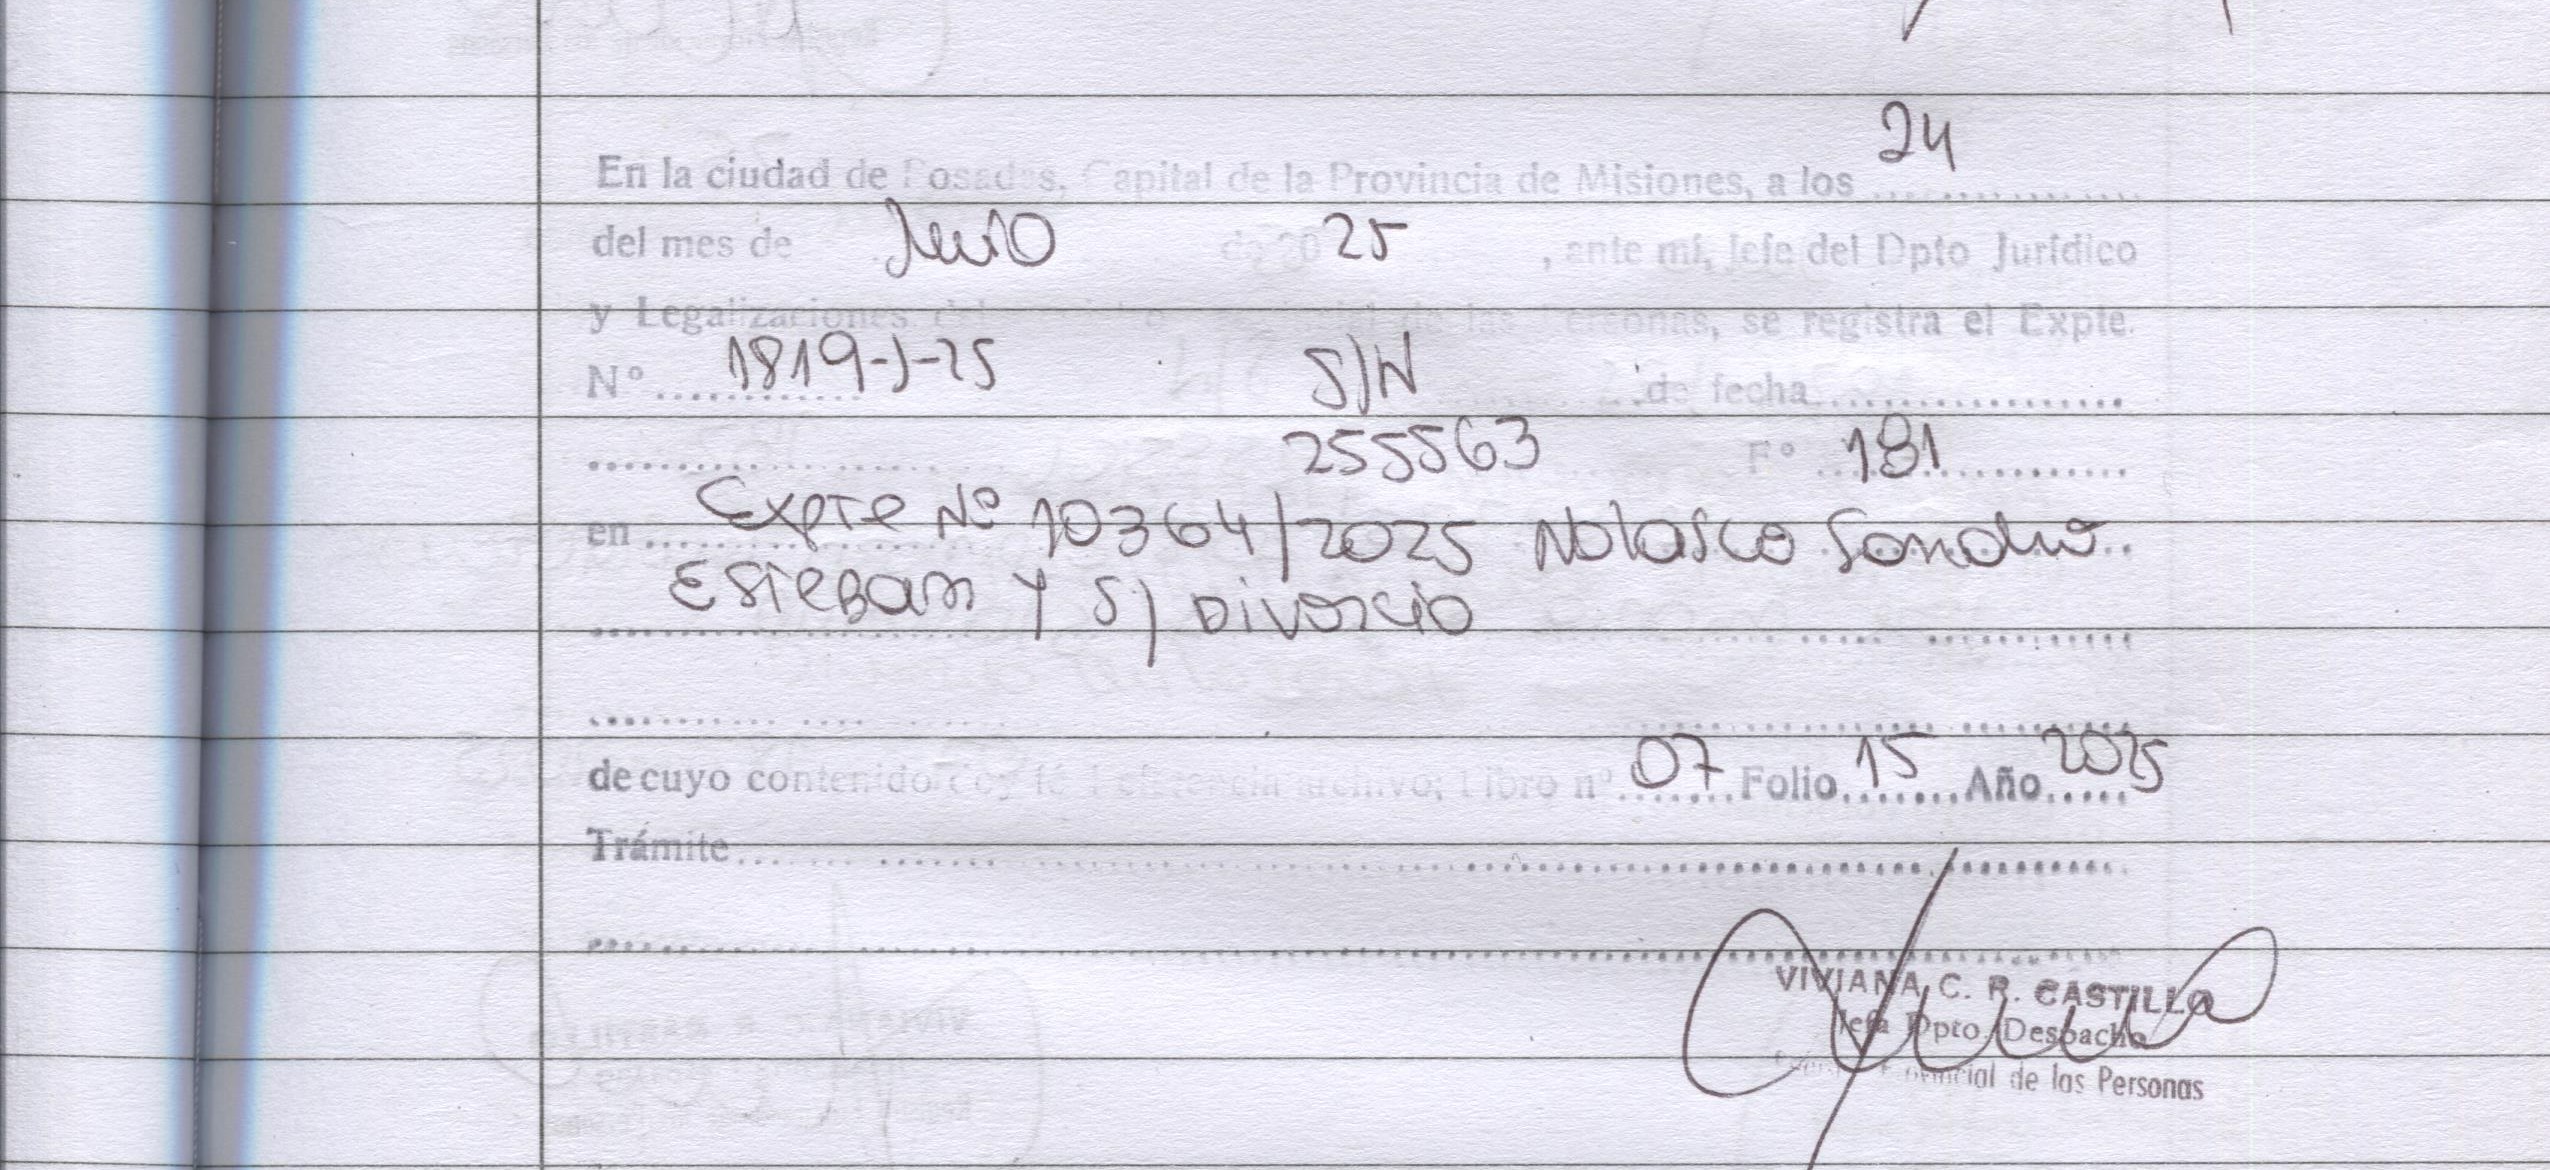 24
En la ciudad de Posadas, Capital de la Provincia de Misiones, a los ................
del mes de Julio de 2025, ante mí, Jefe del Dpto Jurídico
y Legalizaciones del de las Personas, se registra el Expte.
Nº ............ 1819-J-25 S/N de fecha ..................
.................. 255563 Fº 181 ..................
en .................. Expte Nº 10364/2025 Nolasco
Esteban y S/ Divorcio
de cuyo contenido doy fé Referencia archivo; Libro nº 07 Folio 15 Año 2025
Trámite ..................
VIVIANA C. R. CASTILLO
Jefa Dpto. Despacho
Provincial de las Personas